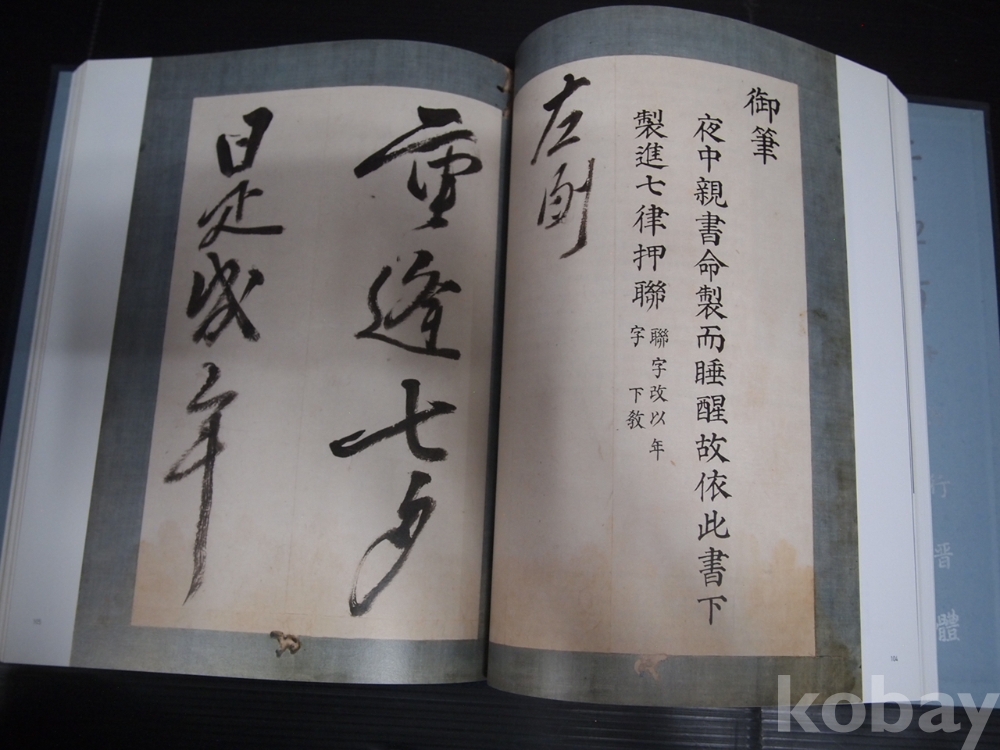 御筆
夜中親書命製而睡醒故依此書下
製進七律押聯
聯字改以年
字 下敎
左劃
重逢七夕
日是歲年
行晋體
164
kobay